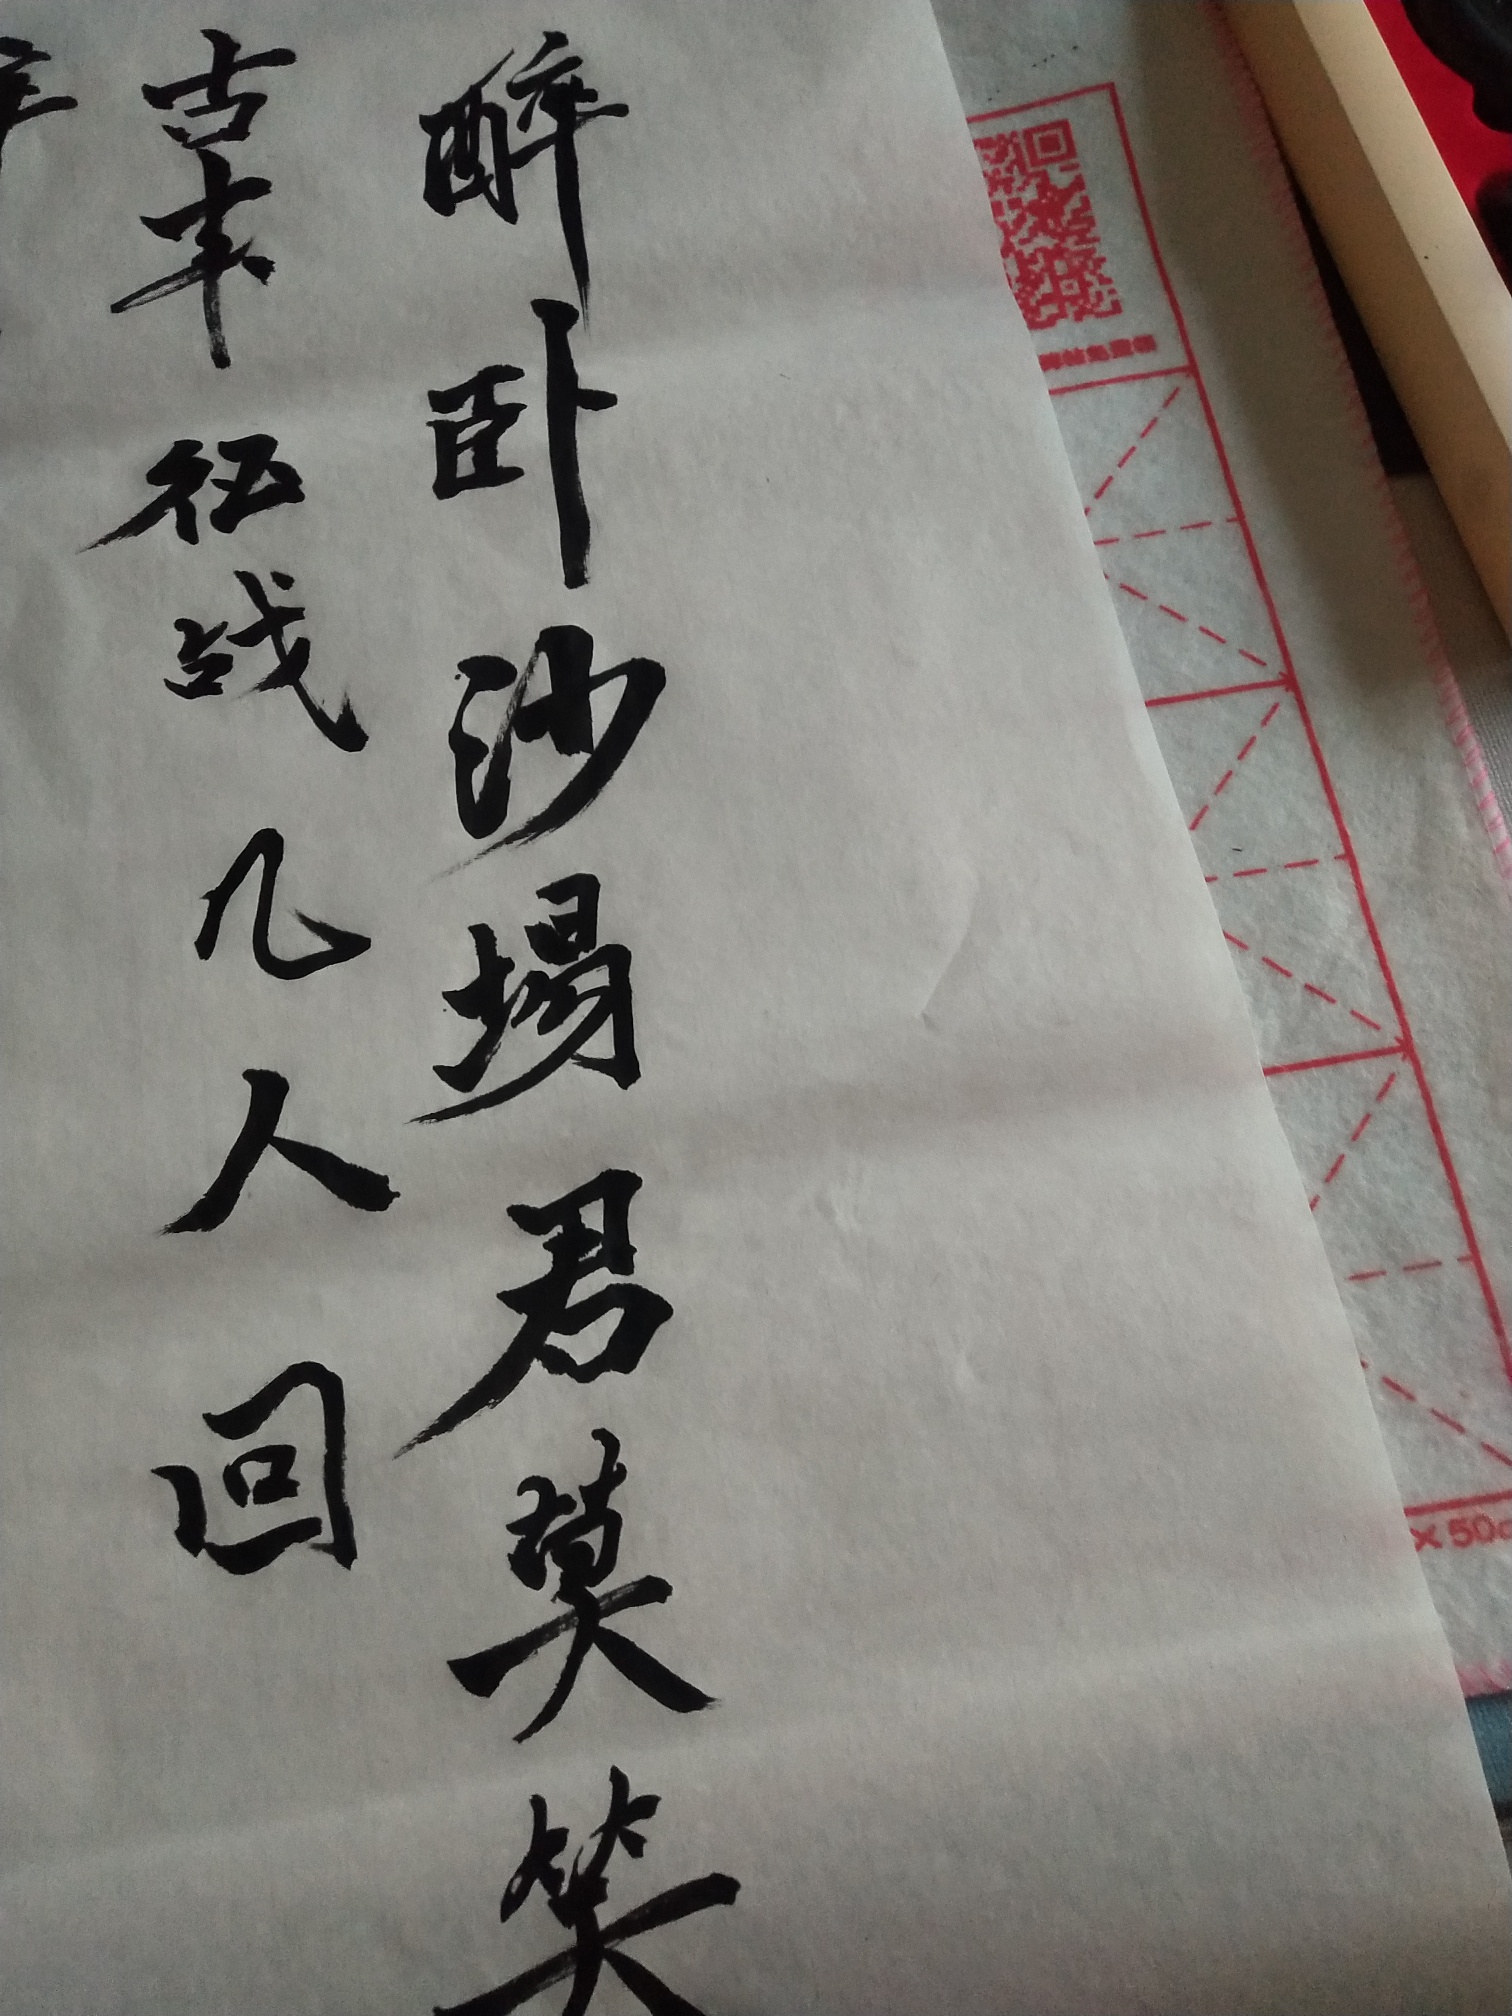 醉卧沙場君莫笑
古来征战几人回
× 50c